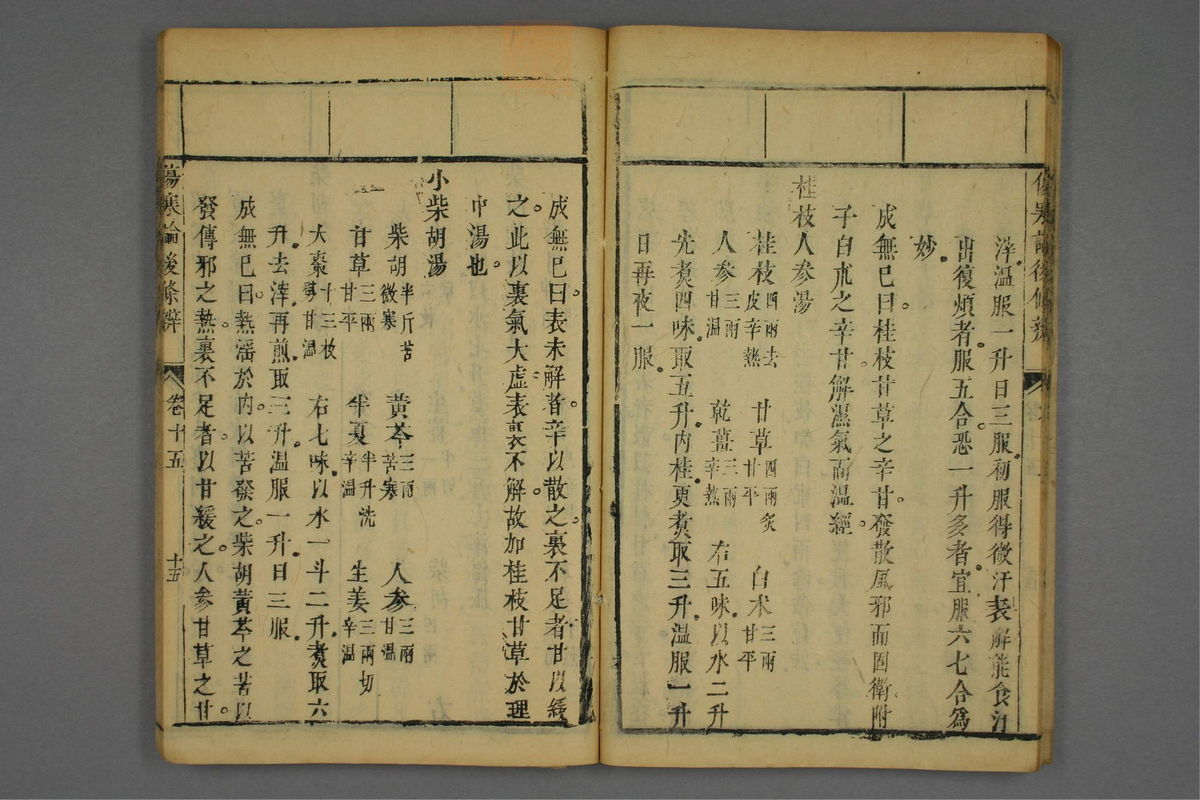 傷寒論後條辨
滓溫服一升日三服初服得微汗表解能食汗
出復煩者服五合恐一升多者宜服六七合爲
妙
成無已曰桂枝甘草之辛甘發散風邪而固衛附
子白朮之辛甘解濕氣而溫經
桂枝人參湯
桂枝四兩去皮辛熱 甘草四兩炙甘平 白术三兩甘平
人參三兩甘溫 乾薑三兩辛熱 右五味以水二升
先煮四味取五升內桂更煮取三升溫服一升
日再夜一服
成無已曰表未解者辛以散之裏不足者甘以緩
之此以裏氣大虛表裏不解故加桂枝甘草於理
中湯也
小柴胡湯
柴胡半斤苦微寒 黃芩三兩苦寒 人參三兩甘溫
甘草三兩甘平 半夏半升洗辛溫 生姜三兩切辛溫
大棗十三枚擘甘溫 右七味以水一斗二升煮取六
升去滓再煎取三升溫服一升日三服
成無已曰熱滛於內以苦發之柴胡黃芩之苦以
發傳邪之熱裏不足者以甘緩之人參甘草之甘
傷寒論後條辨 卷十五 十五